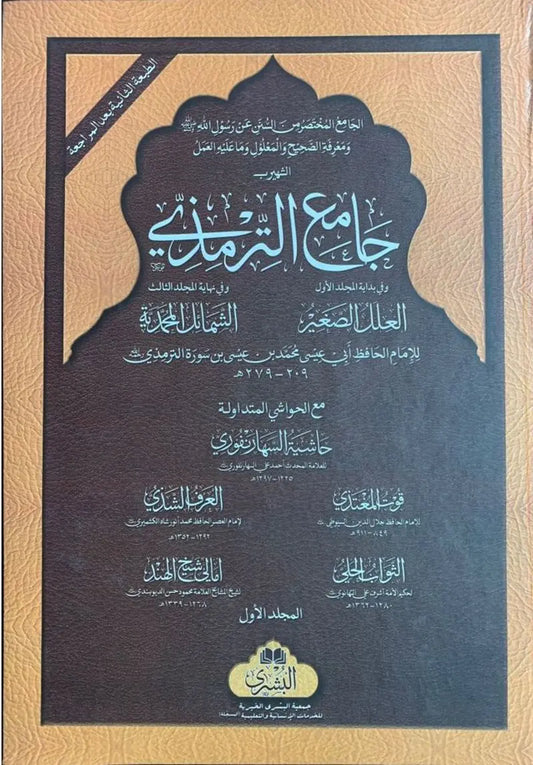 الطبعة الثانية بعد المراجعة
الجَامِعُ المُخْتَصَرُ مِنَ السُّنَنِ عَنْ رَسُوْلِ اللهِ ﷺ
وَمَعْرِفَةِ الصَّحِيْحِ وَالْمَعْلُوْلِ وَمَا عَلَيْهِ العَمَلُ
الشهير بـ
جَامِع التِّرْمِذِي
وفي بداية المجلد الأول وفي نهاية المجلد الثالث
العلل الصغير الشمائل المحمدية
للإمام الحافظ أبي عيسى محمد بن عيسى بن سورة الترمذي
٢٠٩ - ٢٧٩هـ
مع الحواشي المتداولة
حاشية السهارنفوري
للعلامة المحدث أحمد علي السهارنفوري
١٢٢٥-١٢٩٧هـ
قوت المغتذي العرف الشذي
للإمام الحافظ جلال الدين السيوطي لإمام العصر الحافظ محمد أنور شاه الكشميري
٨٤٩-٩١١هـ ١٢٩٢-١٣٥٢هـ
الثواب الحلي أمالي شيخ الهند
لحكيم الأمة أشرف علي التهانوي لشيخ المشائخ العلامة محمود حسن الديوبندي
١٢٨٠-١٣٦٢هـ ١٢٦٨-١٣٣٩هـ
المجلد الأول
البشرى
جمعية البشرى الخيرية
للخدمات الإنسانية والتعليمية